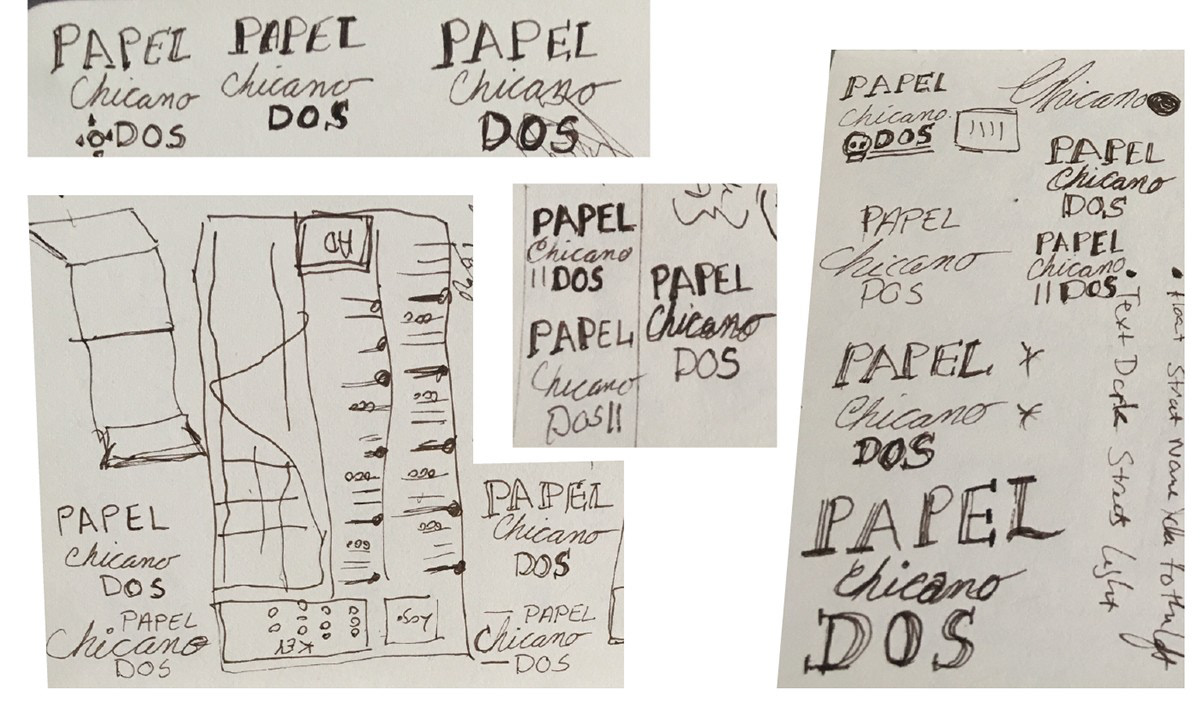 PAPEL
Chicano
DOS
PAPEL
Chicano
DOS
PAPEL
Chicano
DOS
AD
KEY
PAPEL
Chicano
DOS
PAPEL
Chicano
DOS
PAPEL
Chicano
DOS
PAPEL
Chicano
DOS
PAPEL
Chicano
DOS
PAPEL
Chicano
DOS
PAPEL
Chicano
DOS
PAPEL
Chicano
DOS
Chicano
PAPEL
Chicano
DOS
PAPEL
Chicano
DOS
PAPEL
Chicano
DOS
PAPEL
Chicano
DOS
PAPEL
Chicano
DOS
Text Dark Streets light